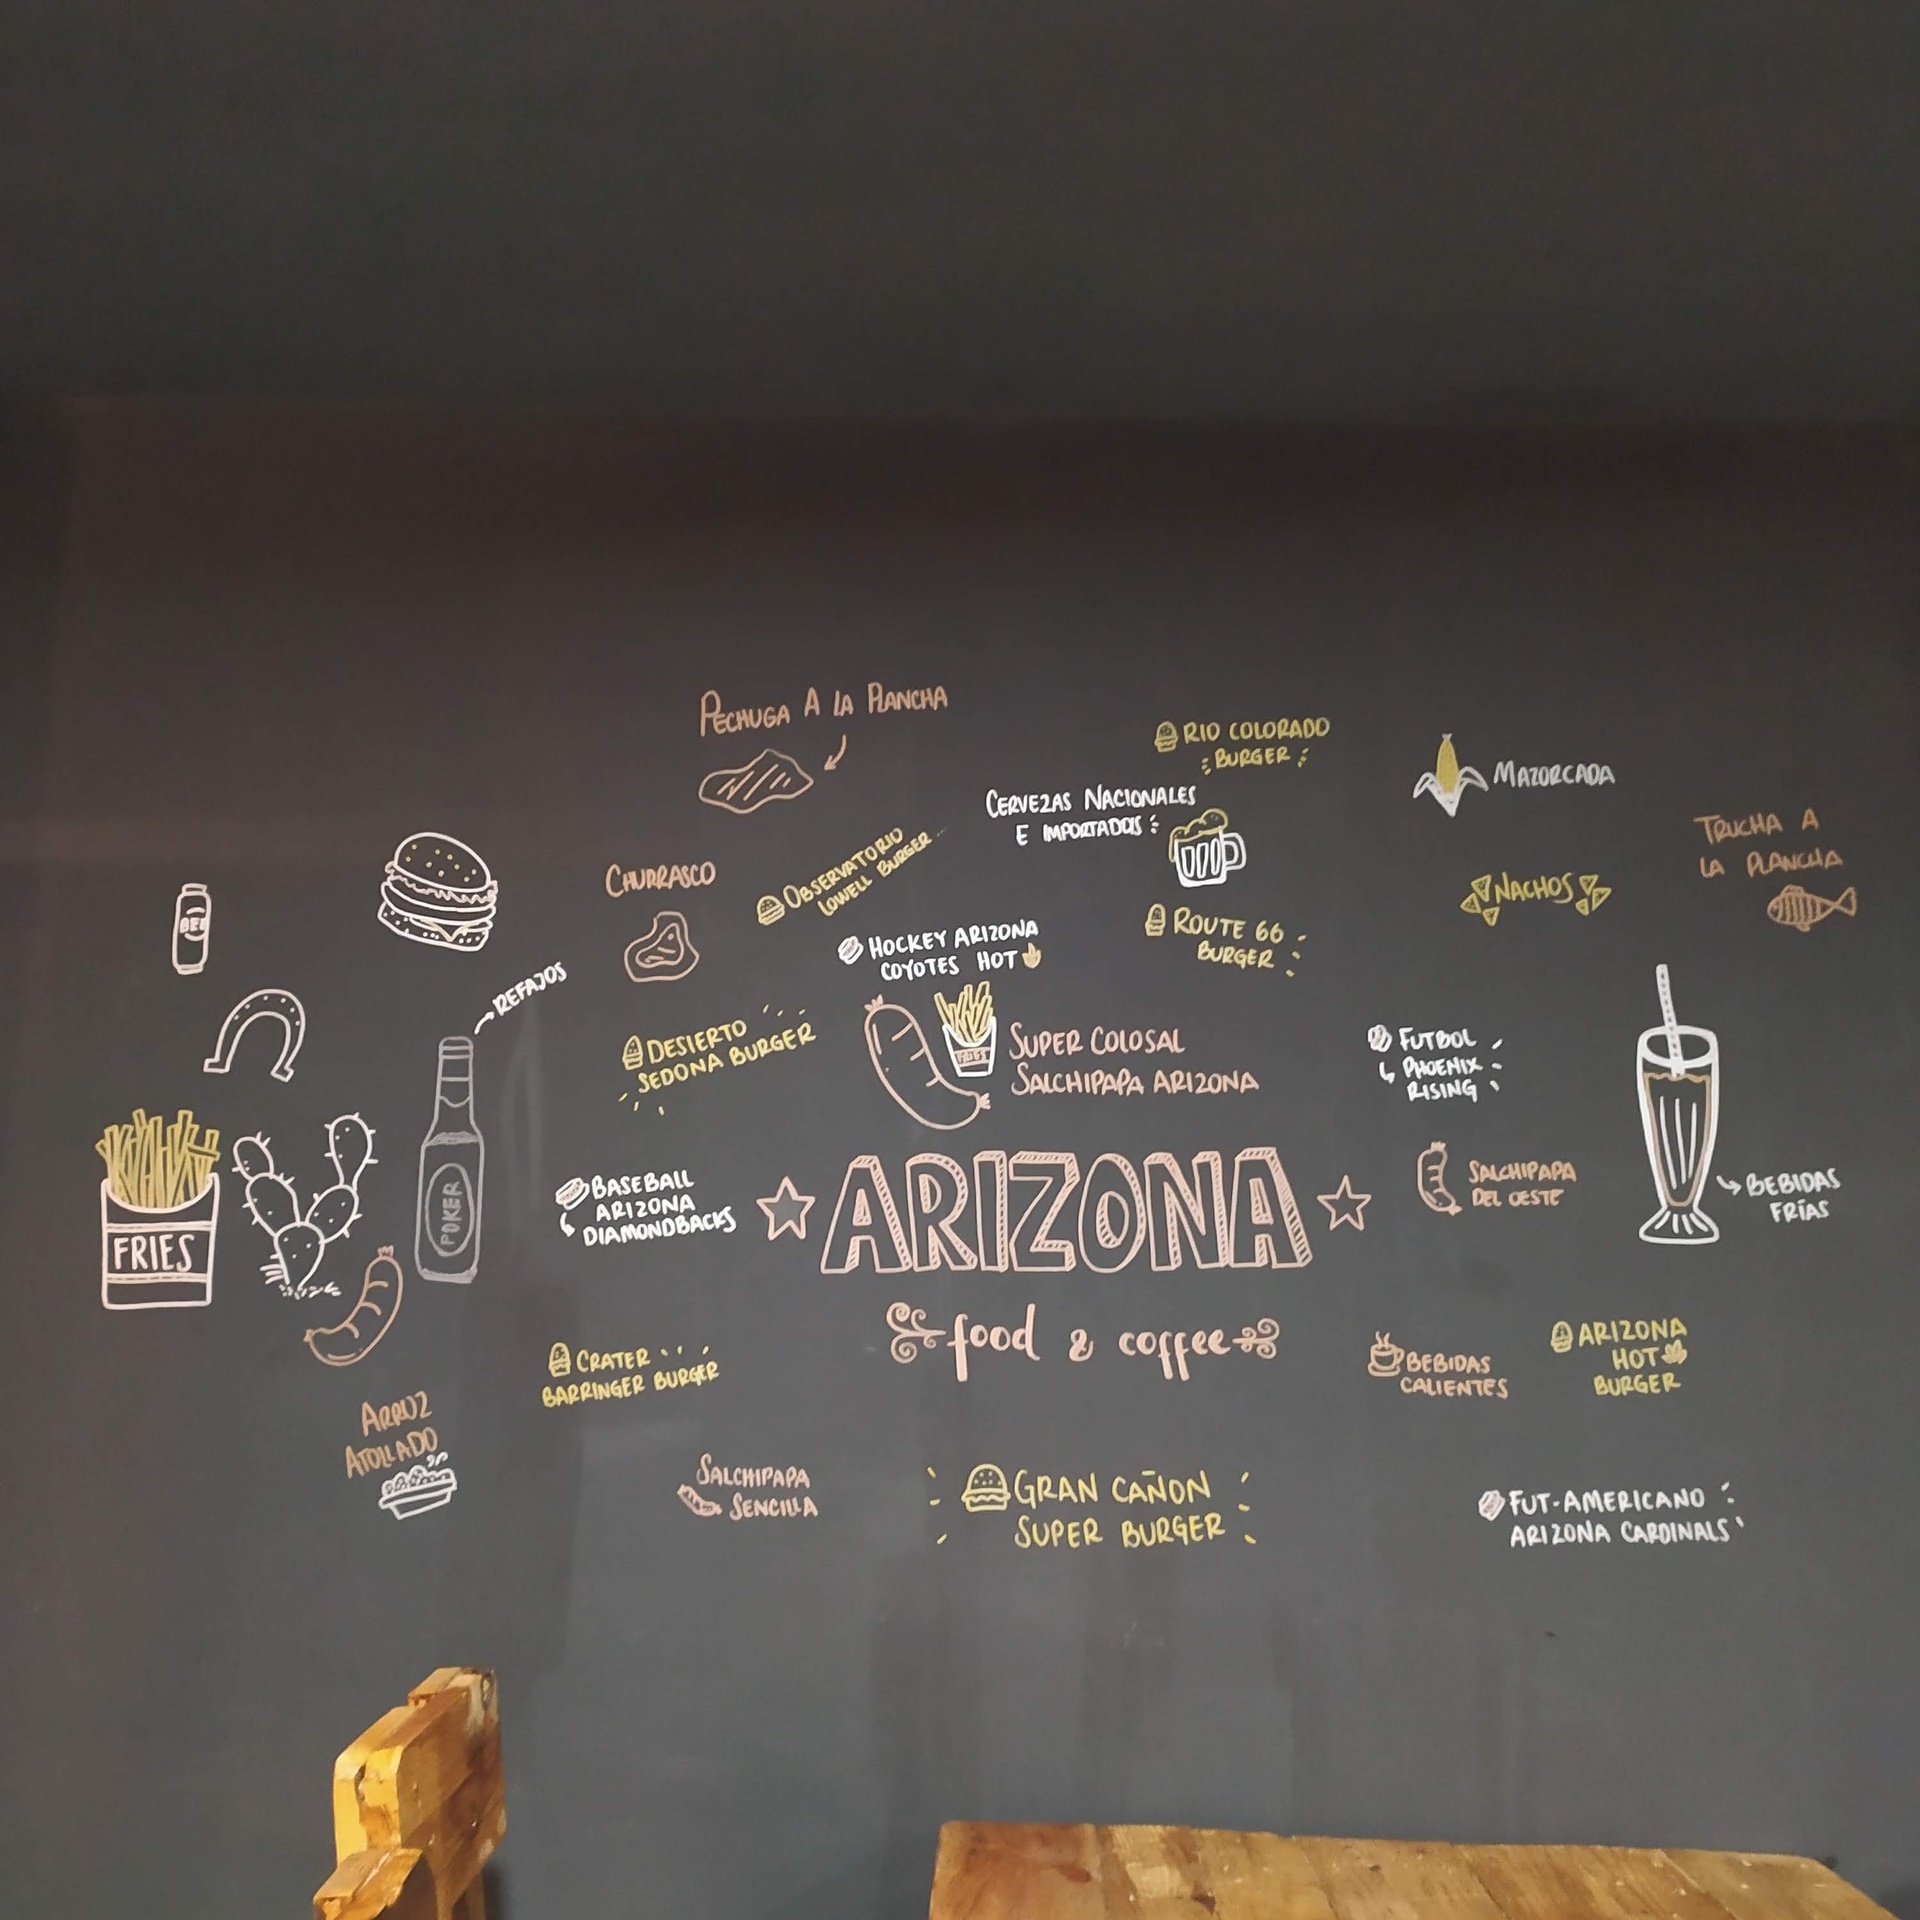 PECHUGA A LA PLANCHA
RIO COLORADO
BURGER
MAZORCADA
CERVEZAS NACIONALES
E IMPORTADAS
TRUCHA A
LA PLANCHA
OBSERVATORIO
LOWELL BURGER
CHURRASCO
NACHOS
BEI
HOCKEY ARIZONA
COYOTES HOT
ROUTE 66
BURGER
REFAJOS
DESIERTO
SEDONA BURGER
FRIES
SUPER COLOSAL
SALCHIPAPA ARIZONA
FUTBOL
PHOENIX
RISING
POKER
BASEBALL
ARIZONA
DIAMONDBACKS
ARIZONA
SALCHIPAPA
DEL OESTE
BEBIDAS
FRÍAS
FRIES
food & coffee
CRATER
BARRINGER BURGER
BEBIDAS
CALIENTES
ARIZONA
HOT
BURGER
ARROZ
ATOLLADO
SALCHIPAPA
SENCILLA
GRAN CAÑON
SUPER BURGER
FUT-AMERICANO
ARIZONA CARDINALS